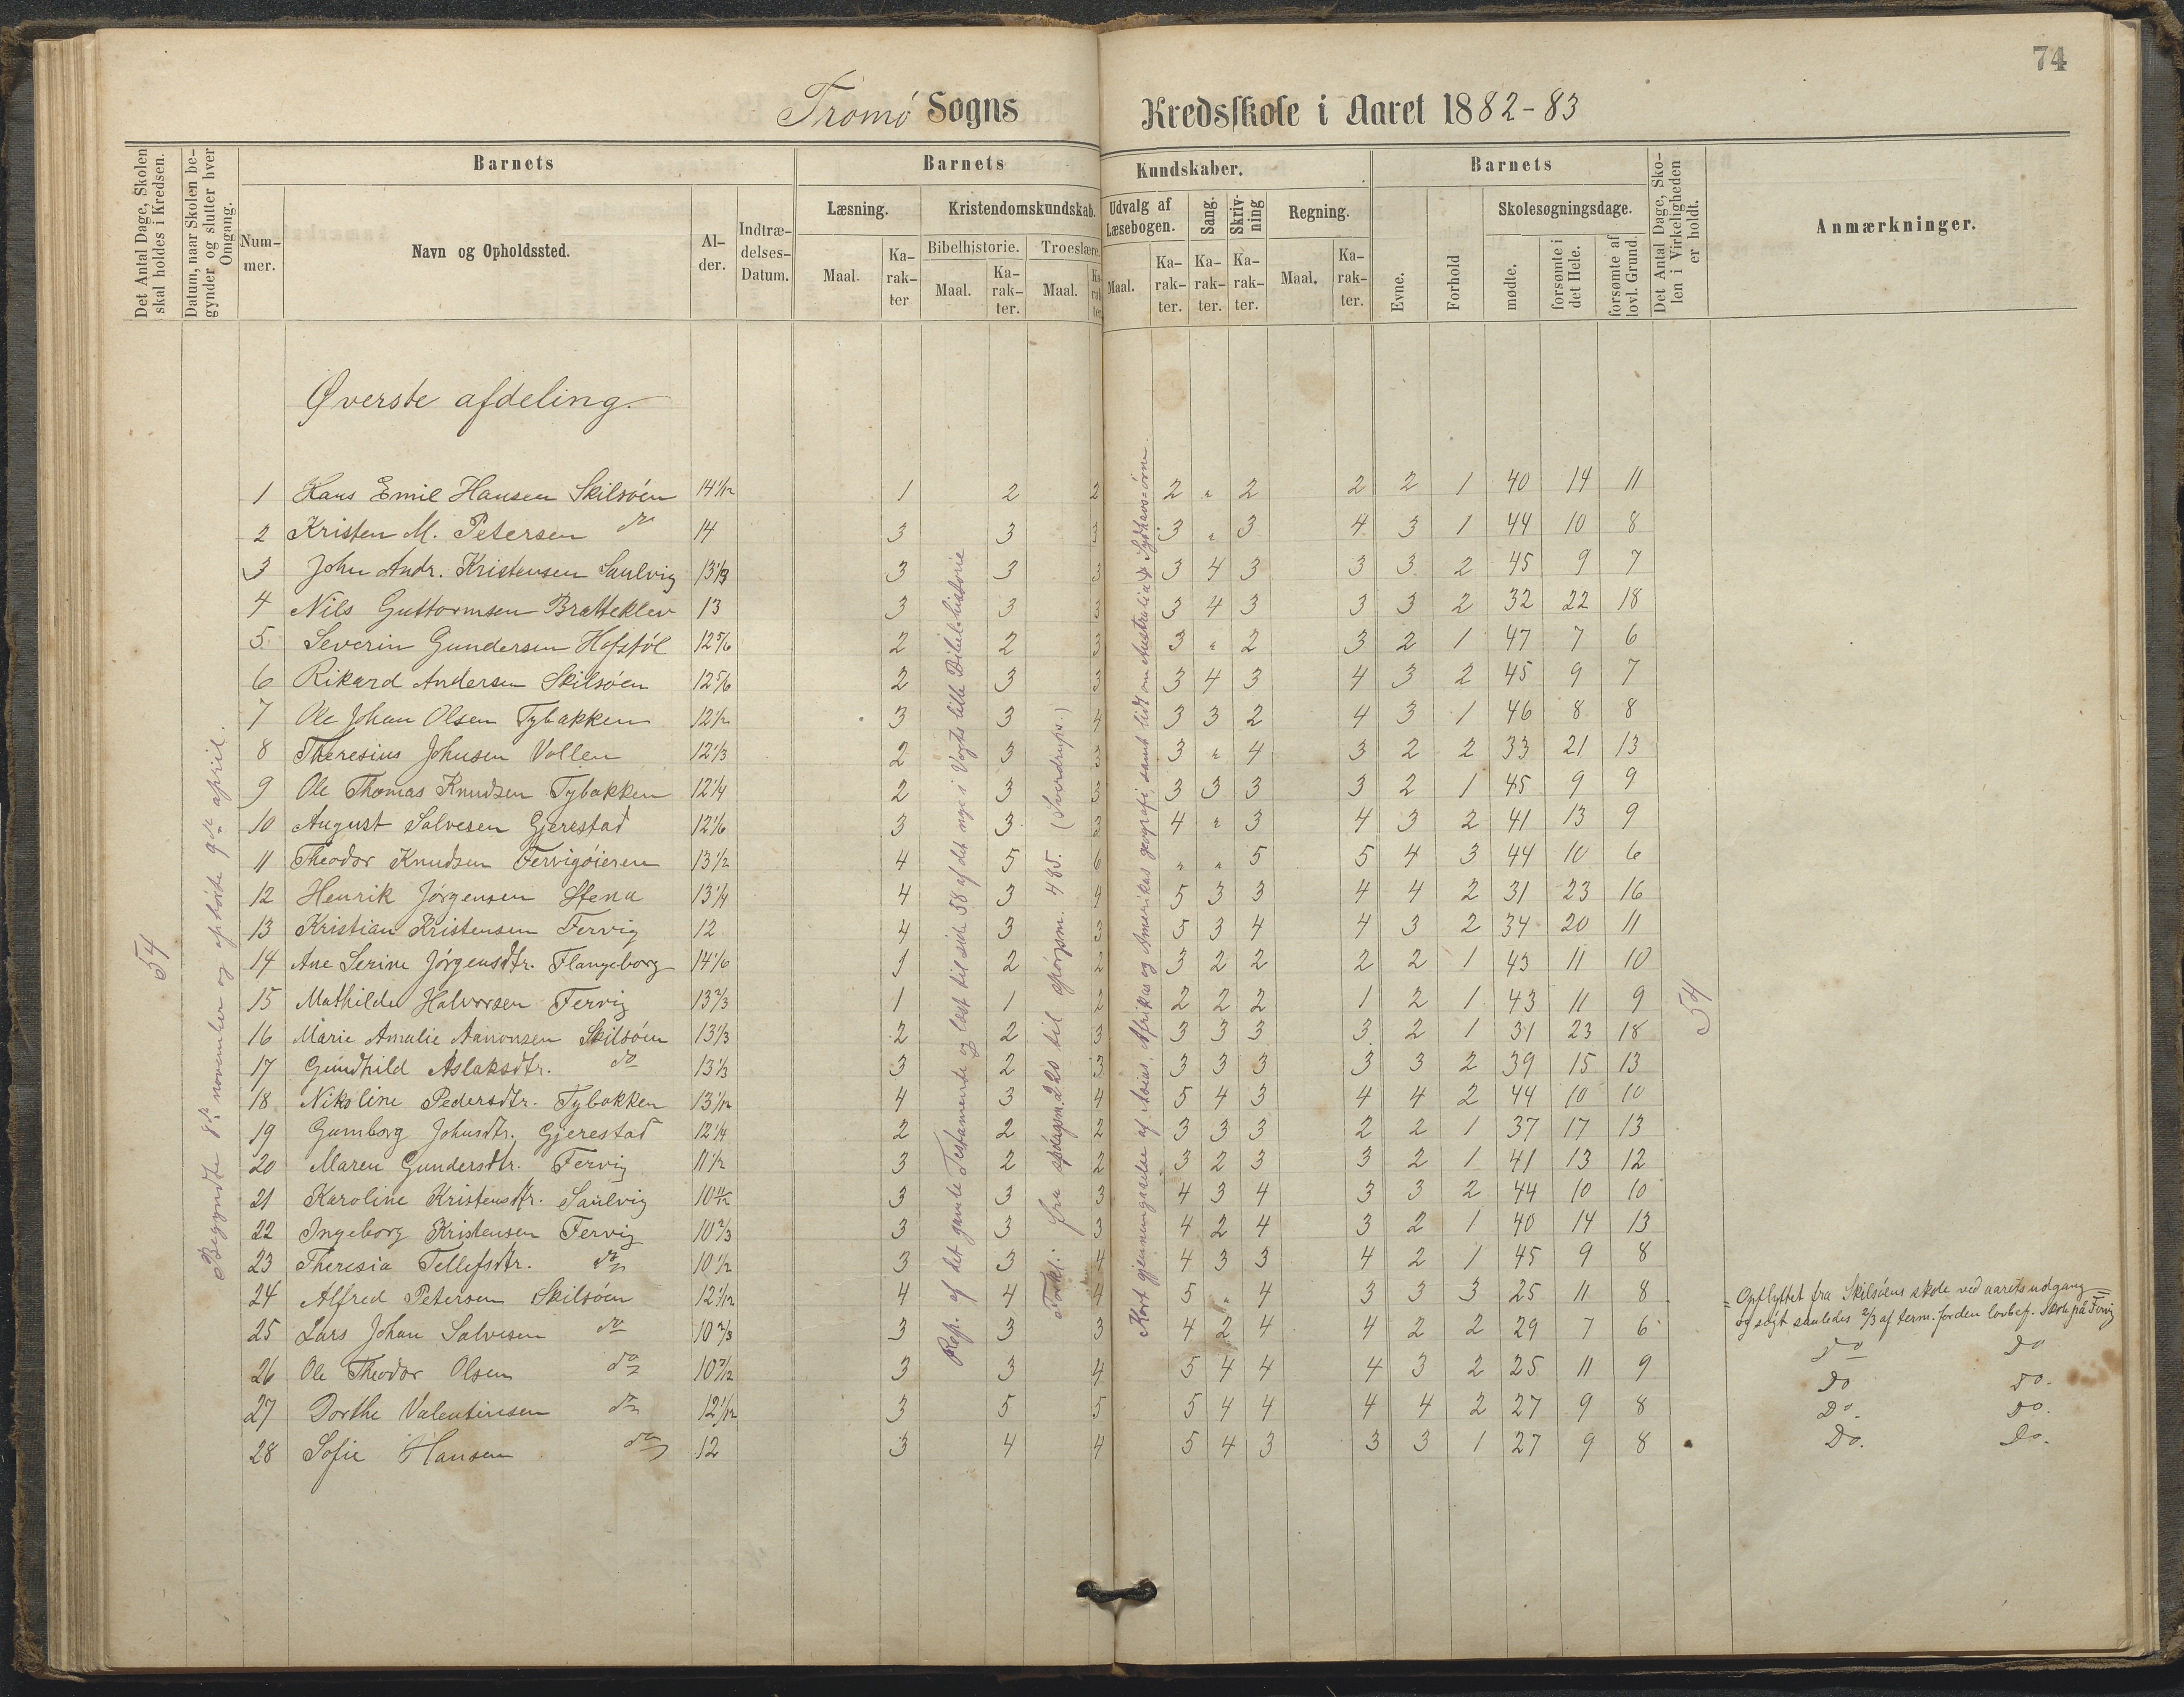 74
Tromø Sogns Kredsskole i Aaret 1882-83
Det Antal Dage, Skolen skal holdes i Kredsen.
Datum, naar Skolen begynder og slutter hver Omgang.
Barnets
Barnets
Kundskaber.
Barnets
Det Antal Dage, Skolen i Virkeligheden er holdt.
Anmærkninger.
Nummer.
Navn og Opholdssted.
Alder.
Indtrædelses-Datum.
Læsning.
Kristendomskundskab.
Udvalg af Læsebogen.
Sang.
Skrivning
Regning.
Evne.
Forhold
Skolesøgningsdage.
Bibelhistorie.
Troeslære.
Maal.
Karakter
Maal.
Karakter.
Maal.
Karakter.
Maal.
Karakter.
Karakter.
Karakter.
Maal.
Karakter.
mødte.
forsømte i det Hele.
forsømte af lovl. Grund.
Øverste afdeling.
1 Hans Emil Hansen Skilsøen 14 1/12 1 2 2 2 " 2 2 2 1 40 14 11
2 Kristen M. Petersen do 14 3 3 3 3 " 3 4 3 1 44 10 8
3 John Andr. Kristensen Saulvig 13 1/3 3 3 3 3 4 3 3 3 2 45 9 7
4 Nils Guttormsen Bratteklev 13 3 3 3 3 4 3 3 3 2 32 22 18
5 Severin Gundersen Hofstöl 12 5/6 2 2 3 3 " 2 3 2 1 47 7 6
6 Rikard Andersen Skilsøen 12 5/6 2 3 3 3 4 3 4 3 2 45 9 7
7 Ole Johan Olsen Tybakken 12 1/2 3 3 4 3 3 2 4 3 1 46 8 8
8 Theresius Johnsen Vollen 12 1/3 2 3 3 3 " 4 3 2 2 33 21 13
9 Ole Thomas Knudsen Tybakken 12 1/4 2 3 3 3 3 3 3 2 1 45 9 9
10 August Salvesen Gjerestad 12 1/6 3 3 3 4 " 3 4 3 2 41 13 9
11 Theodor Knudsen Fervigöieren 13 1/2 4 5 6 " " 5 5 4 3 44 10 6
12 Henrik Jørgensen Stena 13 1/4 4 3 4 5 3 3 4 4 2 31 23 16
13 Kristian Kristensen Fervig 12 4 3 3 5 3 4 4 3 2 34 20 11
14 Ane Serine Jörgensdtr. Flangeborg 14 1/6 1 2 2 3 2 2 2 2 1 43 11 10
15 Mathilde Halvorsen Fervig 13 2/3 1 1 2 2 2 2 1 2 1 43 11 9
16 Marie Amalie Aanonsen Skilsøen 13 1/3 2 2 3 3 3 3 3 2 1 31 23 18
17 Gundhild Aslaksdtr. do 13 1/3 3 2 3 3 3 3 3 3 2 39 15 13
18 Nikoline Pedersdtr. Tybakken 13 1/12 4 3 4 5 4 3 4 4 2 44 10 10
19 Gumborg Johnsdtr. Gjerestad 12 1/4 2 2 2 3 3 3 2 2 1 37 17 13
20 Maren Gundersdtr. Fervig 11 1/2 3 2 2 3 2 3 3 2 1 41 13 12
21 Karoline Kristensdtr. Saulvig 10 11/12 3 3 3 4 3 4 3 3 2 44 10 10
22 Ingeborg Kristensen Fervig 10 2/3 3 3 3 4 2 4 3 2 1 40 14 13
23 Theresia Tellefsdtr. do 10 1/2 3 3 4 4 3 3 4 2 1 45 9 8
24 Alfred Petersen Skilsøen 12 1/12 4 4 4 5 " 4 3 3 3 25 11 8 Opflyttet fra Skilsøens skole ved aarets udgang
og søgt saaledes 2/3 af term. for den lovbef. skole på Fervig
25 Lars Johan Salvesen do 10 2/3 3 3 3 4 2 4 4 2 2 29 7 6 Do Do
26 Ole Theodor Olsen do 10 7/12 3 3 4 5 4 4 4 3 2 25 11 9 Do Do.
27 Dorthe Valentinsen do 12 1/12 3 5 5 5 4 4 4 4 2 27 9 8 Do. Do.
28 Sofie Hansen do 12 3 4 4 5 4 3 3 3 1 27 9 8 Do. Do.
54
Begyndte 8de november og ophörte 9de april.
Rep. af det gamle Testamente og læst til side 58 af det nye i Vogts lille Bibelhistorie
Forkl.: fra spörgsm. 220 til spörgsm. 435. (Sverdrups.)
Kort gjennemgaaelse af Asias, Afrikas og Amerikas geografi, samt lidt om Australia & Sydhavsöerne.
54